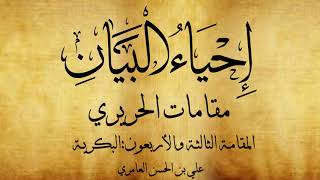 إِحْيَاءُ الْبَيَانِ
مقامات الحريري
المقامة الثالثة والأربعون:البكرية
علي بن الحسن العامري